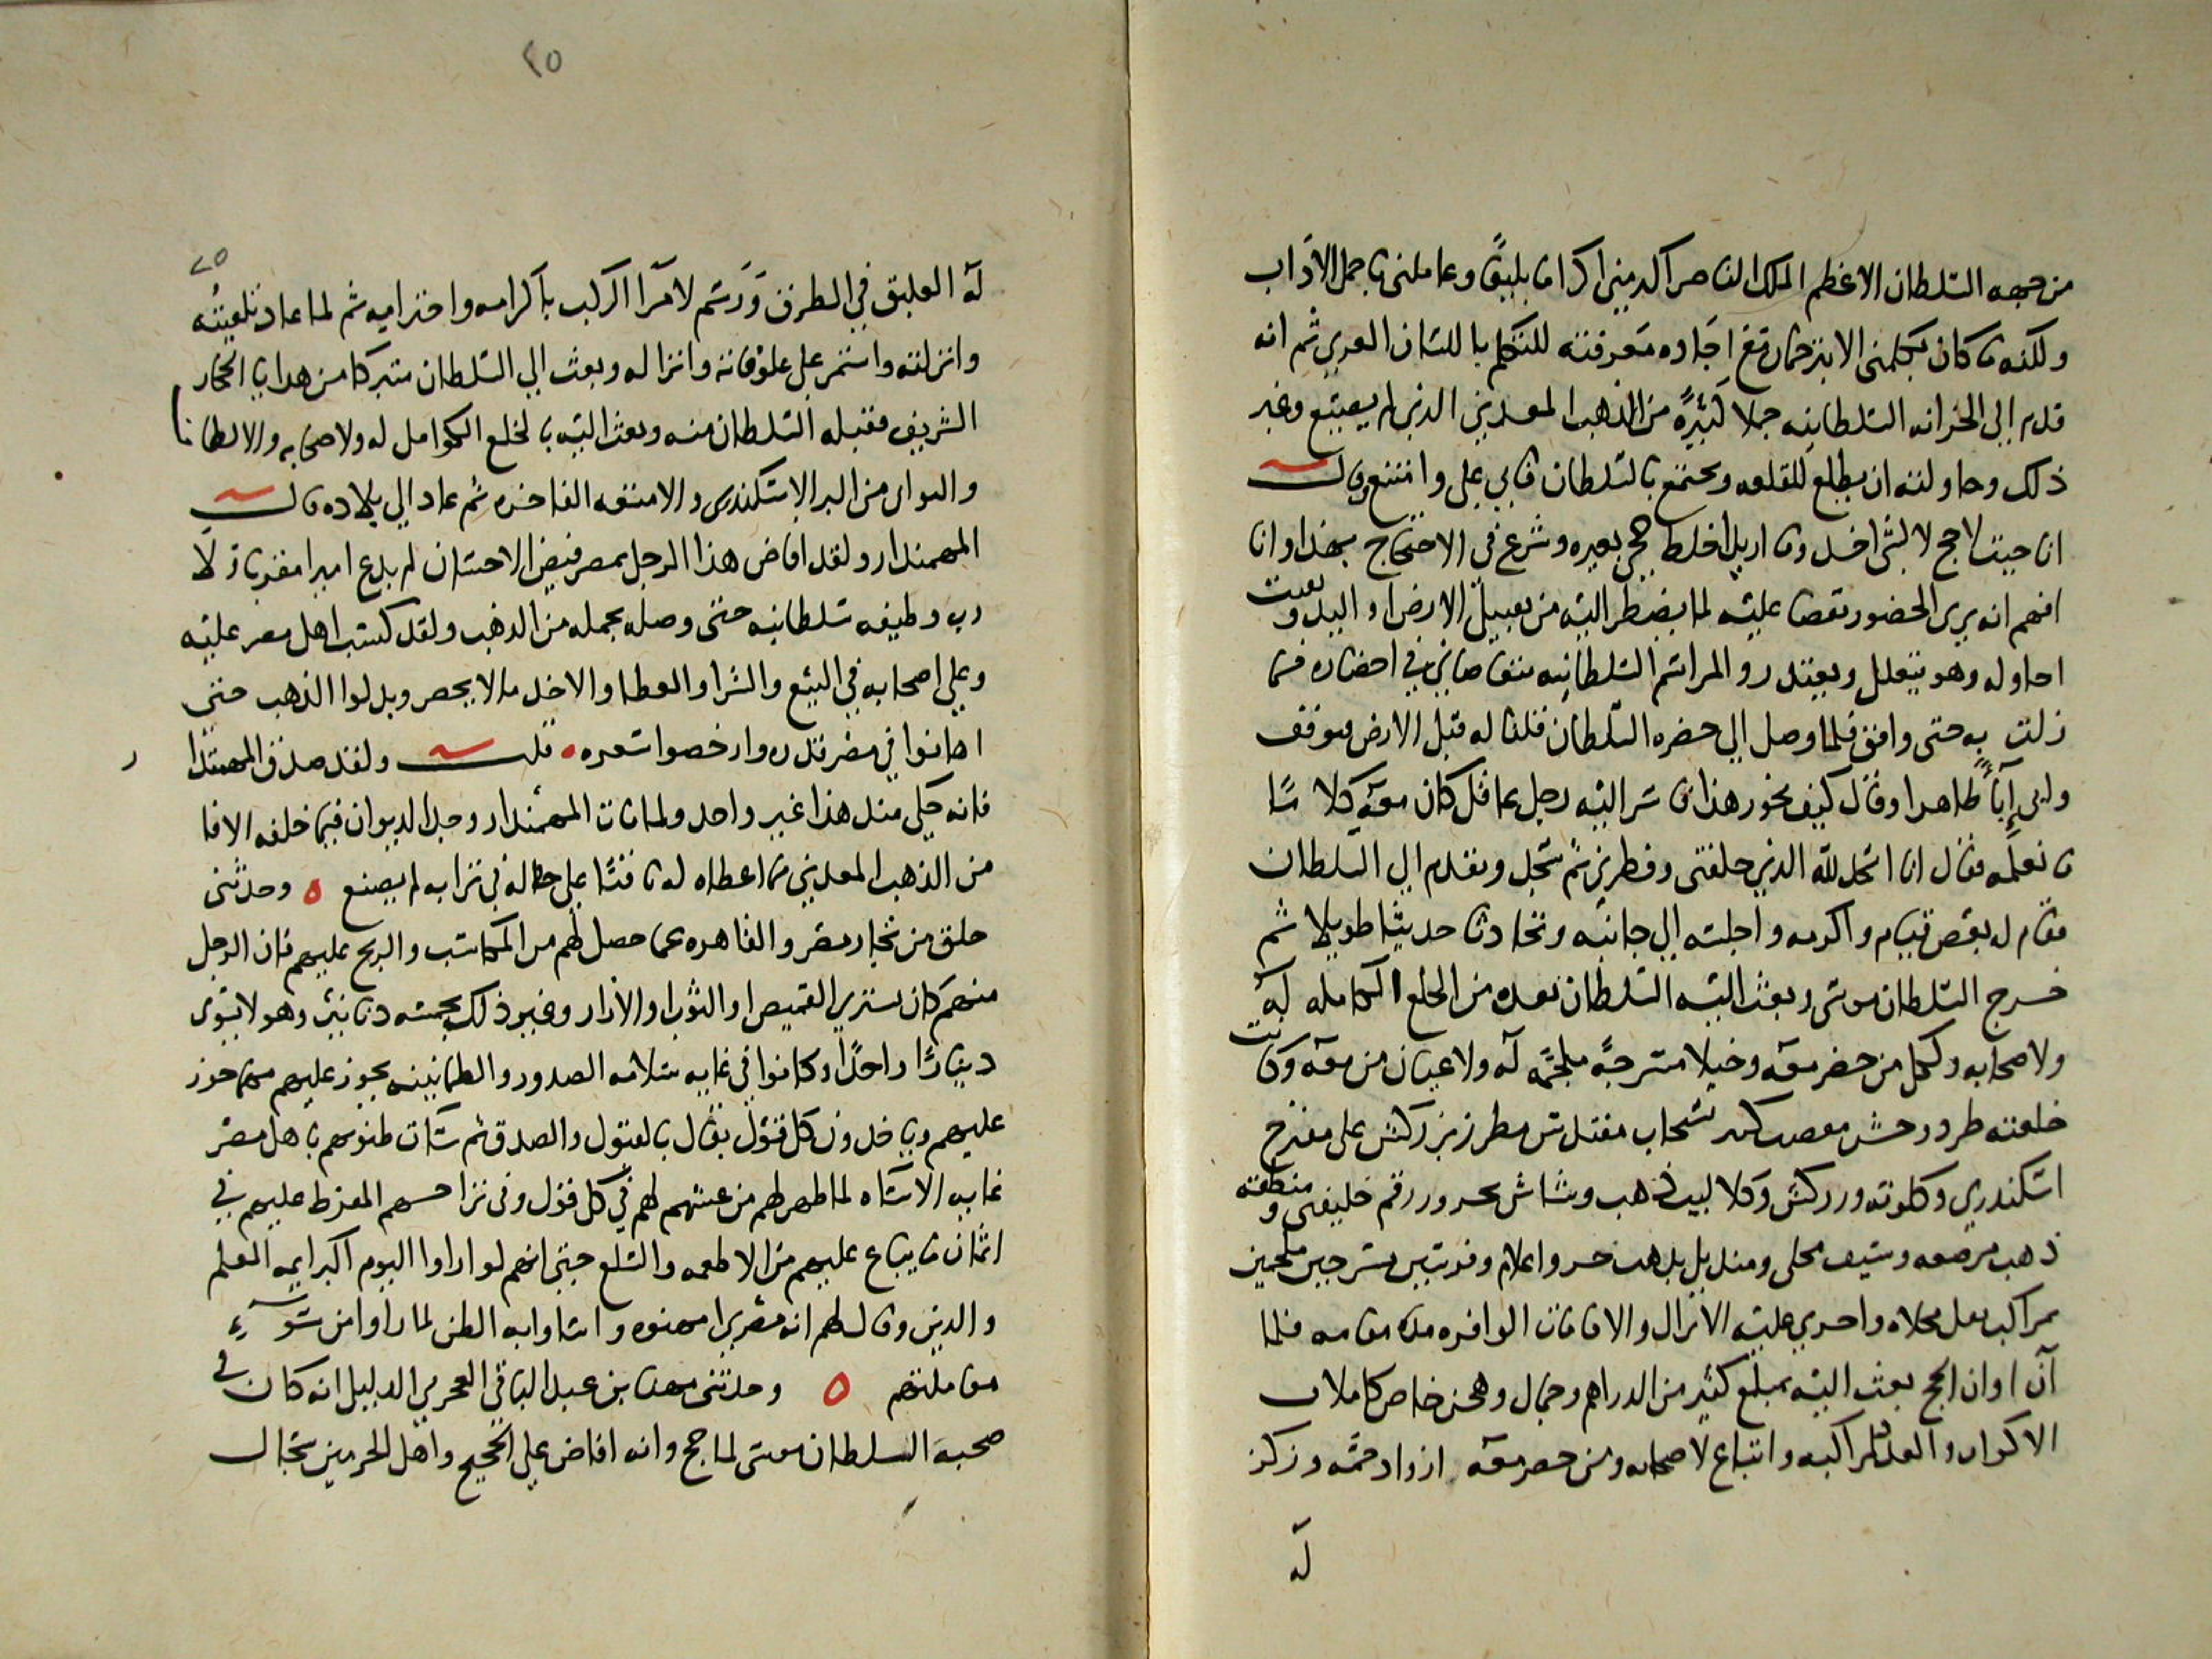 من جهه السلطان الاعظم الملك الناصر اكرمني اكراما بليغا وعاملني باجمل الاداب
ولكنه ما كان يكلمني الا بترجمان مع اجاده معرفته للتكلم باللسان العربي ثم انه
قدم الى الخزانه السلطانيه جملا كثيرة من الذهب المعدني الذي لم يصنع وغير
ذلك وحاولته ان يطلع للقلعه ويجتمع بالسلطان فابى علي وامتنع وقال
انا جيت لاحج لا لشى اخر وما اريد اخلط حجي بغيره وشرع في الاحتجاج بهذا وانا
افهم انه يرى الحضور نقصا عليه لما يضطر اليه من تقبيل الارض او اليد وبقيت
احاوله وهو يتعلل ويعتذر والمراسم السلطانيه تتقاضاني في احضاره فما
زلت به حتى وافق فلما وصل الى حضره السلطان قلنا له قبل الارض فتوقف
وابى إبآءً ظاهرا وقال كيف يجوز هذا فاسر اليه رجل عاقل كان معه كلاما
ما نعلمه فقال انا اسجد لله الذي خلقني وفطرني ثم سجد وتقدم الى السلطان
فقام له بعض قيام واكرمه واجلسه الى جانبه وتحادثا حديثا طويلا ثم
خرج السلطان موسى وبعث اليه السلطان بعده من الخلع الكامله له
ولاصحابه ولكل من حضر معه وخيلا مسرجةً ملجمة له ولاعيان من معه وكانت
خلعته طرد وحش بسنجاب مقندس مطرز بزركش على مفرج
اسكندري وكلوته زركش وكلاليب ذهب وشاش بحرير رقم خليفتي ومنطقه
ذهب مرصعه وسيف محلى ومنديل مذهب خز واعلام وفرسين مسرجين ملجمين
بمراكب بغل محلاه واجري عليه الانزال والاقامات الوافره مده مقامه فلما
آن اوان الحج بعث اليه بمبلغ كثير من الدراهم وجمال وهجن خاص كاملات
الاكوار والعدد لمراكبه واتباع لاصحابه ومن حضر معه ازواد جمه وركز
له
٢٥
٢٥
له العليق في الطرق وَرَسَم لامرا الركب باكرامه واحترامه ثم لما عاد تلقيته
وانزلته واستمر على علوفاته وانزاله وبعث الي السلطان متبركا من هدايا الحجاز
الشريف فقبله السلطان منه وبعث اليه بالخلع الكوامل له ولاصحابه والالطاف
والوان من البز الاسكندرى والامتعه الفاخره ثم عاد الى بلاده قال
المهمندار ولقد افاض هذا الرجل بمصر فيض الاحسان لم يدع اميرا مقربا ولا
رب وظيفه سلطانيه حتى وصله بجمله من الذهب ولقد كسب اهل مصر عليه
وعلى اصحابه في البيع والشرا والعطا والاخذ مالا يحصر وبذلوا الذهب حتى
اهانوا في مصر قدره وارخصوا سعره قلت ولقد صدق المهمندار
فانه حكى مثل هذا غير واحد ولما مات المهمندار وجد الديوان فيما خلفه الافا
من الذهب المعدني مما اعطاه له باقيا على حاله في ترابه لم يصنع ه وحدثني
خلق من تجار مصر والقاهره عما حصل لهم من المكاسب والربح عليهم فان الرجل
منهم كان يشتري القميص او الثوب او الازار وغير ذلك بخمسه دنانير وهو لا يسوى
دينارًا واحدًا وكانوا في غايه سلامه الصدور والطمانينه يجوز عليهم مهما جوز
عليهم وياخذون كل قول يقال بالقبول والصدق ثم سات ظنونهم باهل مصر
غايه الاساه لما ظهر لهم من غشهم لهم في كل قول وفي تزاحمهم المفرط عليهم في
اثمان ما يباع عليهم من الاطعمه والسلع حتى انهم لو اراوا اليوم اكبر ايمه العلم
والدين وقال لهم انه مصري امتهنوه واساوا به الظن لما راوا من سوء
معاملتهم ه وحدثني مهنا بن عبد الباقي العجرمي الدليل انه كان في
صحبة السلطان موسى لما حج وانه افاض على الحجيج واهل الحرمين سجال